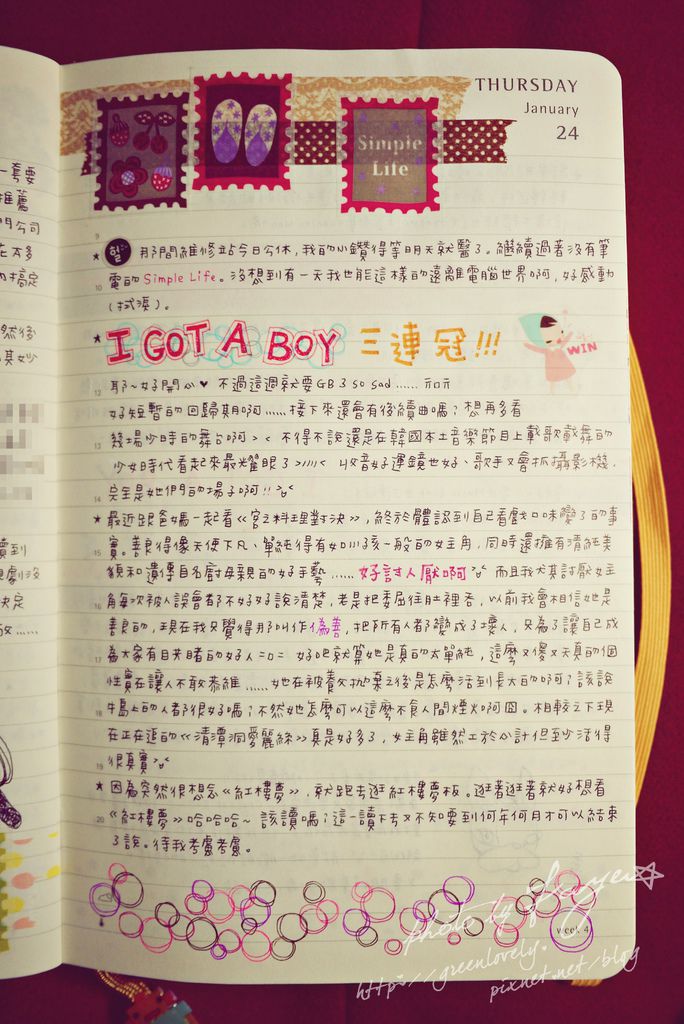 THURSDAY
January
24
Simple
Life
一套要
推薦
門公司
在太多
的搞定
然後
其妙
9
★ 那間維修站今日公休，我的小鑽得等明天就醫了。繼續過著沒有筆
10 電的 Simple Life。沒想到有一天我也能這樣的遠離電腦世界啊，好感動
(拭淚)。
★ I GOT A BOY 三連冠!!!
WIN
12 耶~好開心♥ 不過這週就要GB了 so sad......
好短暫的回歸期啊......接下來還會有後續曲嗎？想再多看
13 幾場少時的舞台啊> < 不得不說還是在韓國本土音樂節目上載歌載舞的
少女時代看起來最耀眼了>///< 收音好運鏡也好、歌手又會抓攝影機，
14 完全是她們的場子啊!!
★ 最近跟爸媽一起看《宮之料理對決》，終於體認到自己看戲口味變了的事
15 實。善良得像天使下凡、單純得有如小孩一般的女主角，同時還擁有清純美
貌和遺傳自名廚母親的好手藝......好討人厭啊 而且我尤其討厭女主
16 角每次被人誤會都不好好說清楚，老是把委屈往肚裡吞，以前我會相信她是
善良的，現在我只覺得那叫作偽善，把所有人都變成了壞人，只為了讓自己成
17 為大家有目共睹的好人=口= 好吧就算她是真的太單純，這麼又傻又天真的個
性實在讓人不敢恭維......她在被養父拋棄之後是怎麼活到長大的啊？該說
18 牛島上的人都很好嗎？不然她怎麼可以這麼不食人間煙火啊囧。相較之下現
在正在追的《清潭洞愛麗絲》真是好多了，女主角雖然工於心計但至少活得
19 很真實
★ 因為突然很想念《紅樓夢》，就跑去逛紅樓夢板。逛著逛著就好想看
20 《紅樓夢》哈哈哈~ 該讀嗎？這一讀下去又不知要到何年何月才可以結束
了說。待我考慮考慮。
week 4
photo by
http://greenlovely.
pixnet.net/blog